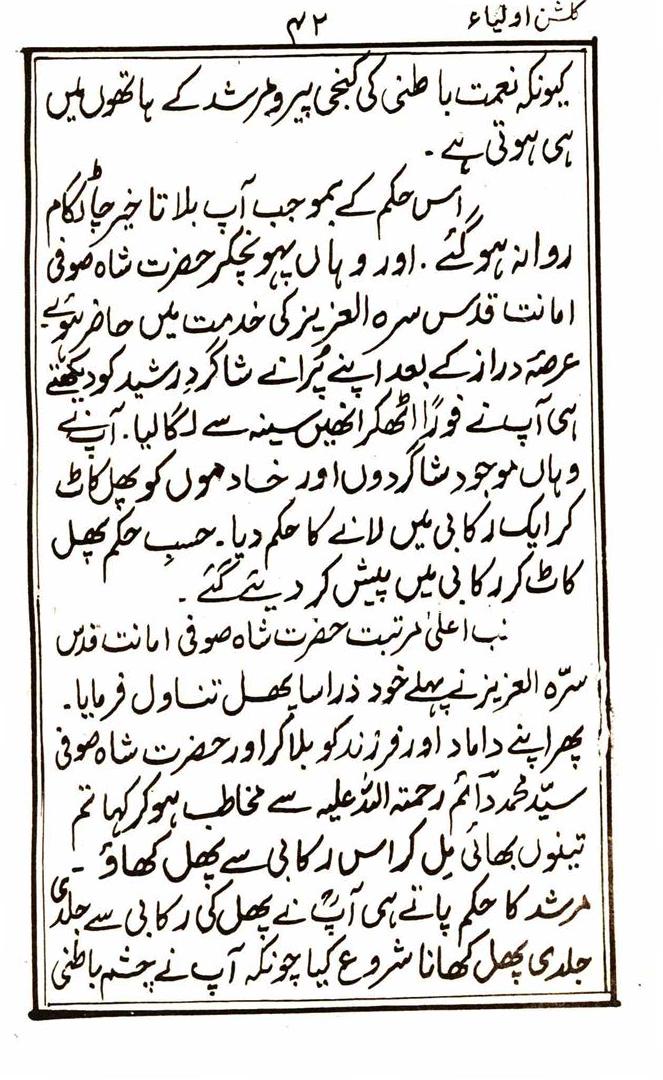 گلشن اولیاء
۴۲
کیونکہ نعمت باطنی کی کنجی پیرو مرشد کے ہاتھوں میں
ہی ہوتی ہے ۔
اس حکم کے بموجب آپ بلا تاخیر چاٹگام
روانہ ہو گئے ۔ اور وہاں پہونچکر حضرت شاہ صوفی
امانت قدس سرہ العزیز کی خدمت میں حاضر ہوئے
عرصۂ دراز کے بعد اپنے پُرانے شاگردِ رشید کو دیکھتے
ہی آپ نے فوراً اٹھکر انھیں سینہ سے لگا لیا ۔ آپ نے
وہاں موجود شاگردوں اور خادموں کو پھل کاٹ
کر ایک رکابی میں لانے کا حکم دیا ۔ حسبِ حکم پھل
کاٹ کر رکابی میں پیش کر دیئے گئے ۔
اعلیٰ مرتبت حضرت شاہ صوفی امانت قدس
سرّہ العزیز نے پہلے خود ذرا سا پھل تناول فرمایا ۔
پھر اپنے داماد اور فرزند کو بلا کر اور حضرت شاہ صوفی
سیّد محمد دائم رحمتہ اللہ علیہ سے مخاطب ہو کر کہا تم
تینوں بھائی مِل کر اس رکابی سے پھل کھاؤ ۔
مرشد کا حکم پاتے ہی آپؒ نے پھل کی رکابی سے جلدی
جلدی پھل کھانا شروع کیا چونکہ آپ نے چشمِ باطنی